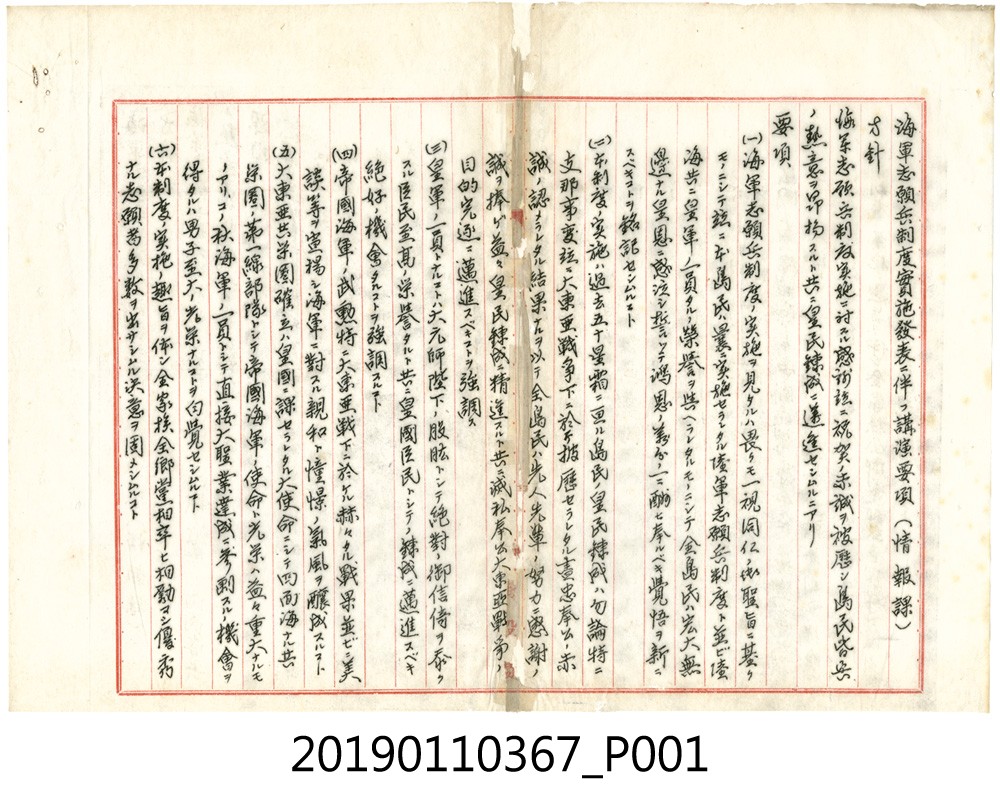 海軍志願兵制度實施發表ニ伴フ講演要項(情報課)
方針
海軍志願兵制度実施ニ対スル感謝竝ニ祝賀ノ赤誠ヲ披歴シ島民皆兵
ノ熱意ヲ昂揚スルト共ニ皇民錬成ニ邁進セシムルニアリ
要項
(一)海軍志願兵制度ノ實施ヲ見タルハ畏クモ一視同仁ノ御聖旨ニ基ク
モノニシテ玆ニ本島民ハ曩ニ実施セラレタル陸軍志願兵制度ト並ビ陸
海共ニ皇軍ノ一員タル榮誉ヲ與ヘラレタルモノニシテ全島民ハ宏大無
邊ナル皇恩ニ感泣シ誓ッテ鴻恩ノ萬分ノ一ニ酬ヒ奉ルベキ覚悟ヲ新ニ
スベキコトヲ銘記セシムルコト
(二)本制度ノ実施ハ過去五十星霜ニ亘ル島民皇民錬成ハ勿論特ニ
支那事変竝ニ大東亜戦争下ニ於テ披歴セラレタル盡忠奉公ノ赤
誠ノ認メラレタル結果ナルヲ以テ全島民ハ先人先輩ノ努力ニ感謝ノ
誠ヲ捧ゲ益々皇民錬成ニ精進スルト共ニ滅私奉公大東亜戰爭ノ
目的完遂ニ邁進スベキコトヲ強調ス
(三)皇軍ノ一員トナルコトハ大元帥陛下ノ股肱トシテ絶對ノ御信倚ヲ忝ク
スル臣民至高ノ栄譽タルト共ニ皇國臣民トシテノ錬成ニ邁進スベキ
絶好ノ機會タルコトヲ強調スルコト
(四)帝國海軍ノ武勲特ニ大東亜戦下ニ於ケル赫々タル戦果並ビニ美
談等ヲ宣揚シ海軍ニ對スル親和ト憧憬ノ氣風ヲ醸成スルコト
(五)大東亜共栄圏確立ハ皇國ニ課セラレタル大使命ニシテ四面海ナル共
栄圏ノ第一線部隊トシテ帝國海軍ノ使命ト光栄ハ益々重大ナルモ
ノアリ、コノ秋海軍ノ一員トシテ直接大聖業達成ニ参劃スル機會ヲ
得タルハ男子至大ノ光栄ナルコトヲ自覚セシムルコト
(六)本制度ノ実施ノ趣旨ヲ体シ全家族全郷黨相率ヒ相勵マシ優秀
ナル志願者多数ヲ出サシムル決意ヲ固メシムルコト
20190110367_P001